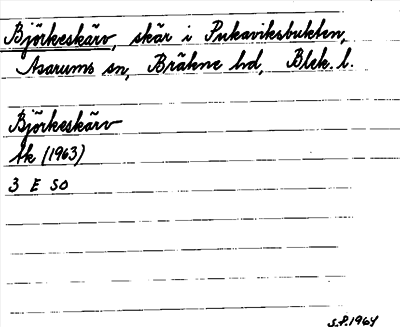 Björkeskärv, skär i Pukaviksbukten,
Asarums sn, Bräkne hd, Blek. l.
Björkeskärv
Ak (1963)
3 E SO
S.P. 1964